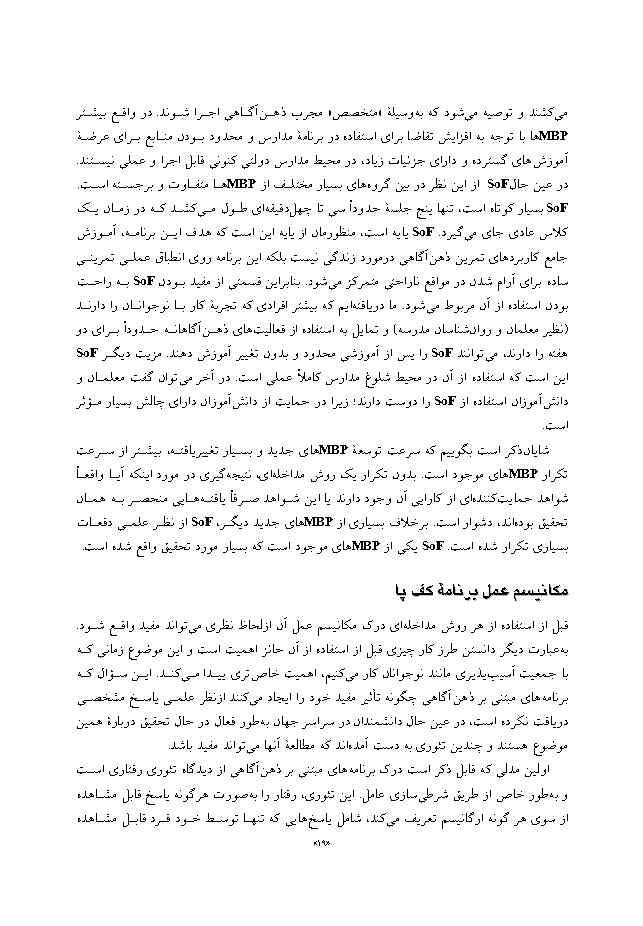 می‌کنند و توصیه می‌شود که به‌وسیلهٔ «متخصص» مجرب ذهن‌آگاهی اجرا شوند. در واقع بیشتر
MBPها با توجه به افزایش تقاضا برای استفاده در برنامهٔ مدارس و محدود بودن منابع برای عرضهٔ
آموزش‌های گسترده و دارای جزئیات زیاد، در محیط مدارس دولتی کنونی قابل اجرا و عملی نیستند.
در عین حالSoF از این نظر در بین گروه‌های بسیار مختلف از MBPها متفاوت و برجسته است.
SoF بسیار کوتاه است، تنها پنج جلسهٔ حدوداً سی تا چهل‌دقیقه‌ای طول می‌کشد که در زمان یک
کلاس عادی جای می‌گیرد. SoF پایه است، منظورمان از پایه این است که هدف این برنامه، آموزش
جامع کاربردهای تمرین ذهن‌آگاهی درمورد زندگی نیست بلکه این برنامه روی انطباق عملی تمرینی
ساده برای آرام شدن در مواقع ناراحتی متمرکز می‌شود. بنابراین قسمتی از مفید بودن SoF به راحت
بودن استفاده از آن مربوط می‌شود. اما دریافته‌ایم که بیشتر افرادی که تجربهٔ کار با نوجوانان را دارند
(نظیر معلمان و روان‌شناسان مدرسه) و تمایل به استفاده از فعالیت‌های ذهن‌آگاهانه حدوداً برای دو
هفته را دارند، می‌توانند SoF را پس از آموزشی محدود و بدون تغییر آموزش دهند. مزیت دیگر SoF
این است که استفاده از آن در محیط شلوغ مدارس کاملاً عملی است. در آخر می‌توان گفت معلمان و
دانش‌آموزان استفاده از SoF را دوست دارند؛ زیرا در حمایت از دانش‌آموزان دارای چالش بسیار مؤثر
است.
شایان‌ذکر است بگوییم که سرعت توسعهٔ MBPهای جدید و بسیار تغییریافته، بیشتر از سرعت
تکرار MBPهای موجود است. بدون تکرار یک روش مداخله‌ای، نتیجه‌گیری در مورد اینکه آیا واقعاً
شواهد حمایت‌کننده‌ای از کارایی آن وجود دارد یا این شواهد صرفاً یافته‌هایی منحصر به همان
تحقیق بوده‌اند، دشوار است. برخلاف بسیاری از MBPهای جدید دیگر، SoF از نظر علمی دفعات
بسیاری تکرار شده است. SoF یکی از MBPهای موجود است که بسیار مورد تحقیق واقع شده است.
مکانیسم عمل برنامهٔ کف پا
قبل از استفاده از هر روش مداخله‌ای درک مکانیسم عمل آن ازلحاظ نظری می‌تواند مفید واقع شود.
به‌عبارت دیگر دانستن طرز کار چیزی قبل از استفاده از آن حائز اهمیت است و این موضوع زمانی که
با جمعیت آسیب‌پذیری مانند نوجوانان کار می‌کنیم، اهمیت خاص‌تری پیدا می‌کند. این سؤال که
برنامه‌های مبتنی بر ذهن آگاهی چگونه تأثیر مفید خود را ایجاد می‌کنند ازنظر علمی پاسخ مشخصی
دریافت نکرده است، در عین حال دانشمندان در سراسر جهان به‌طور فعال در حال تحقیق دربارهٔ همین
موضوع هستند و چندین تئوری به دست آمده‌اند که مطالعهٔ آنها می‌تواند مفید باشد.
اولین مدلی که قابل ذکر است درک برنامه‌های مبتنی بر ذهن‌آگاهی از دیدگاه تئوری رفتاری است
و به‌طور خاص از طریق شرطی‌سازی عامل. این تئوری، رفتار را به‌صورت هرگونه پاسخ قابل مشاهده
از سوی هر گونه ارگانیسم تعریف می‌کند، شامل پاسخ‌هایی که تنها توسط خود فرد قابل مشاهده
«۱۹»